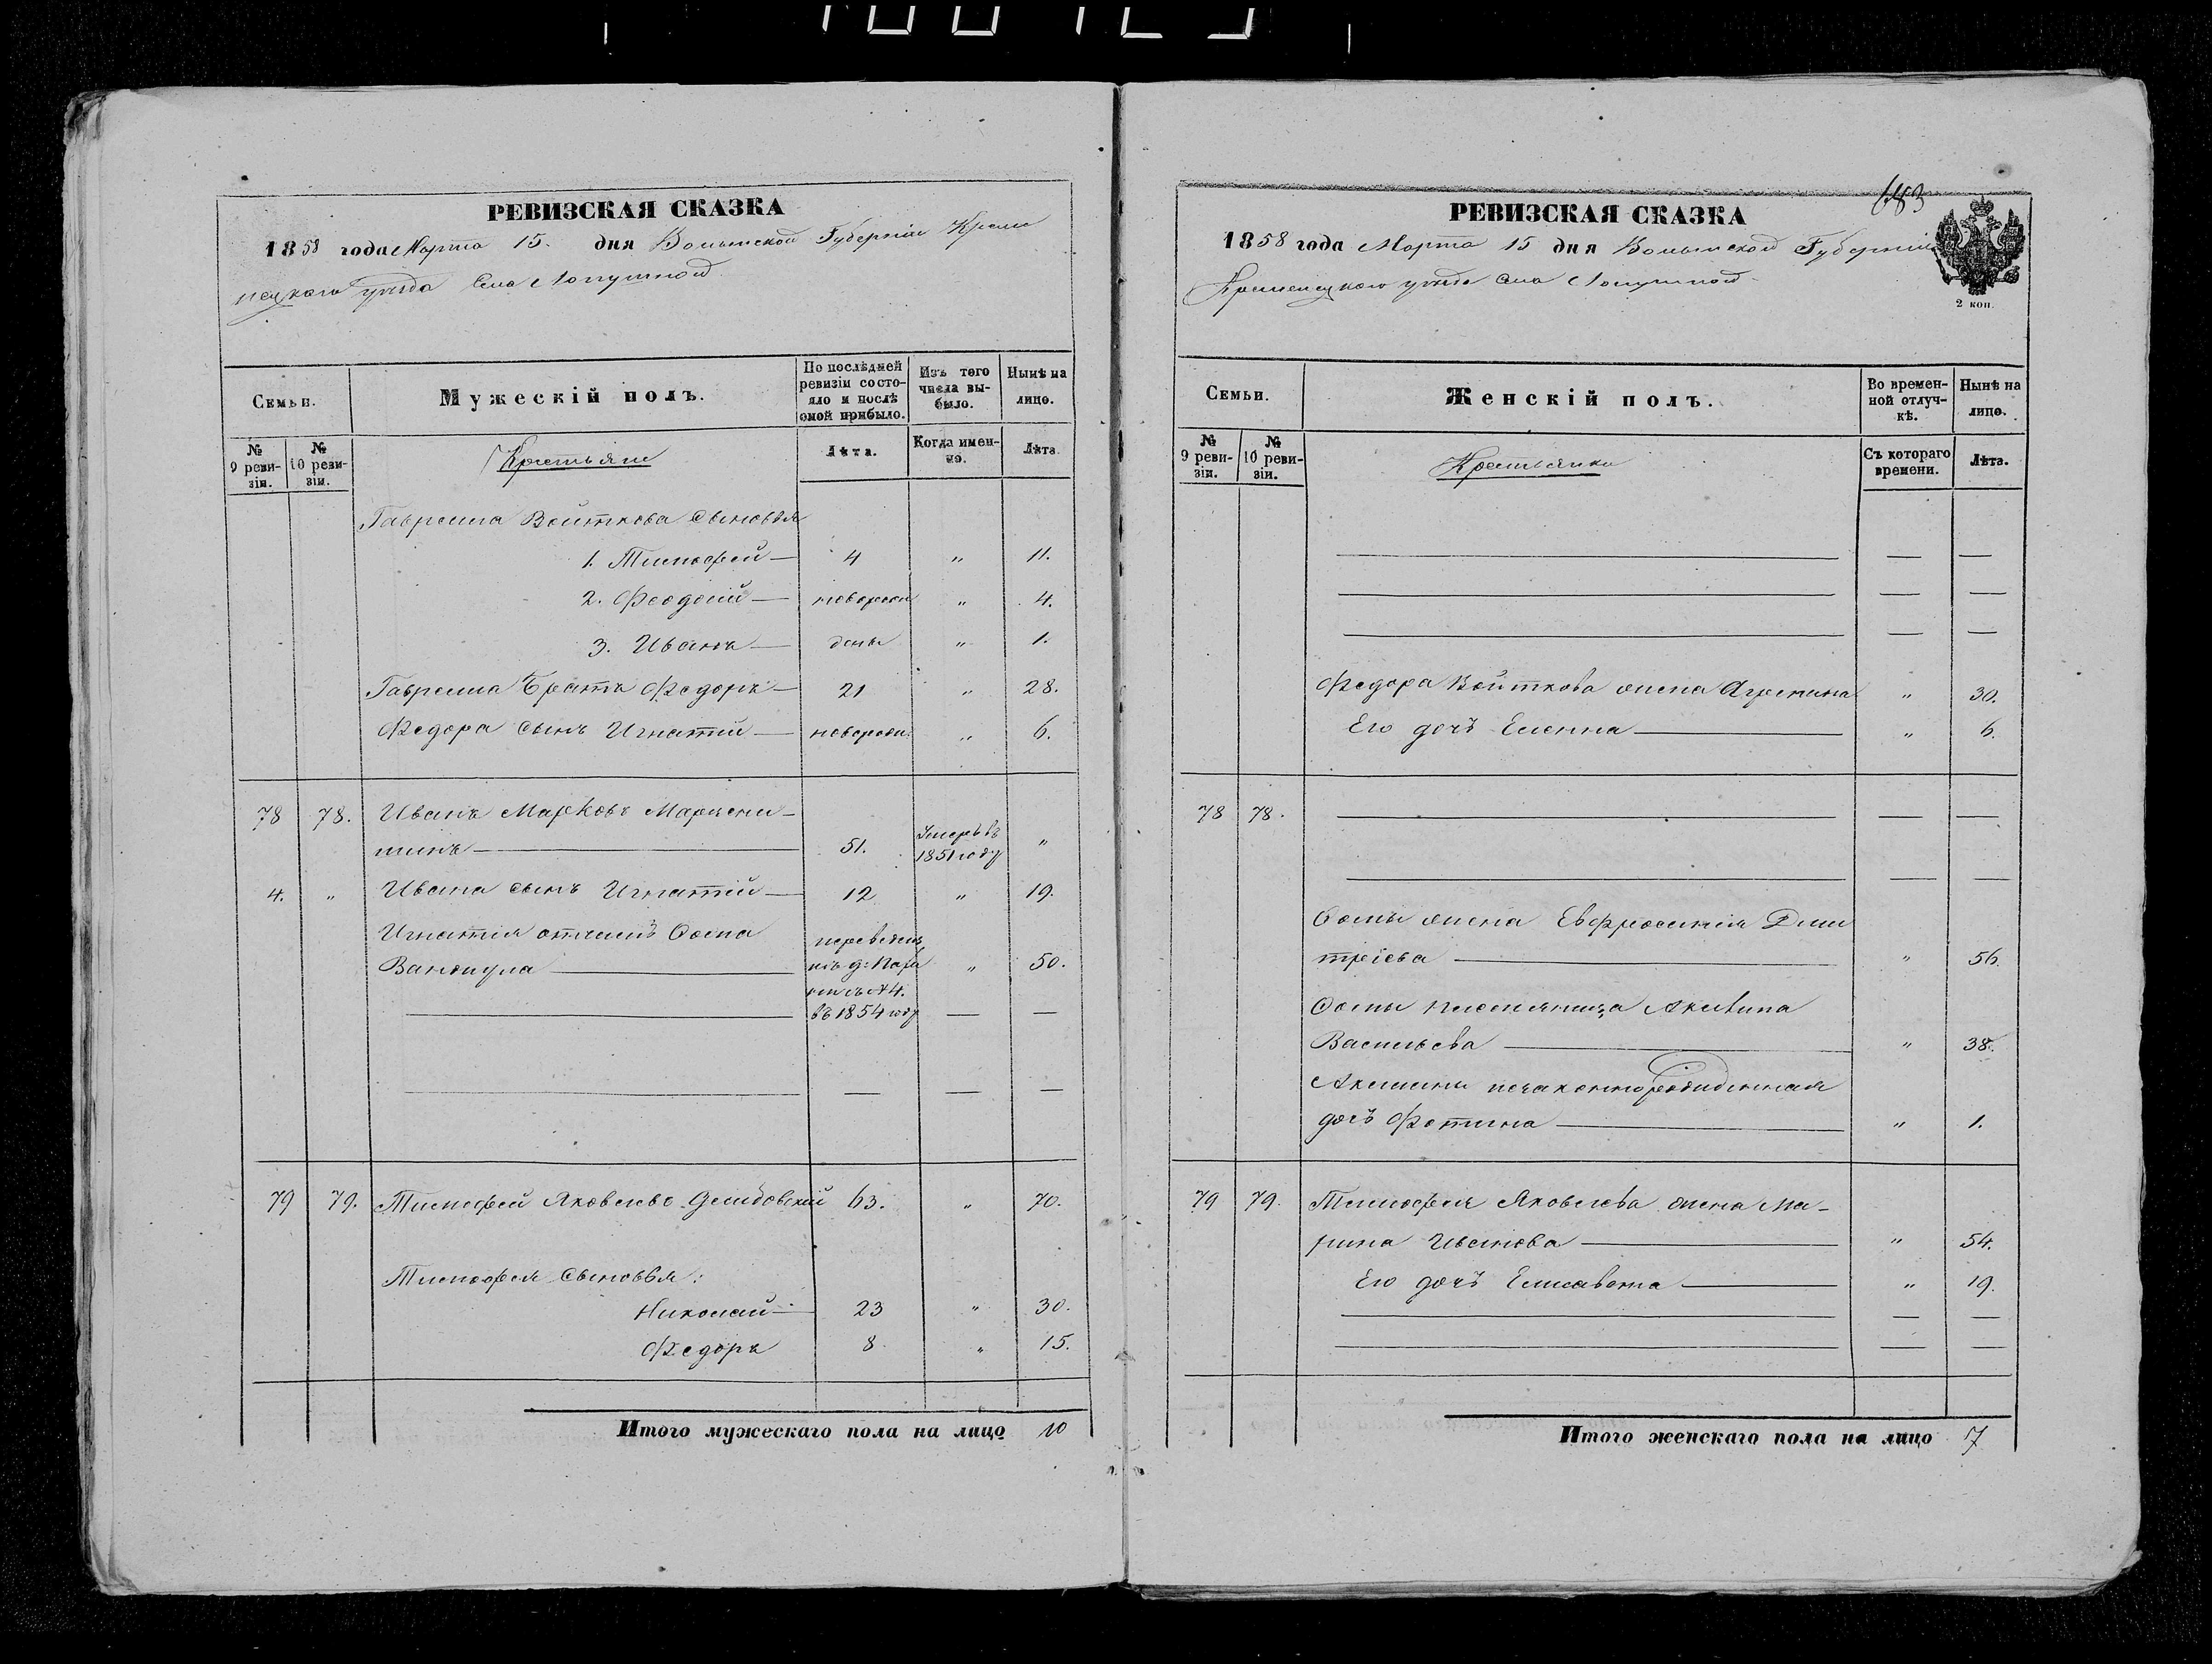 РЕВИЗСКАЯ СКАЗКА
1858 года Марта 15. дня Волынской Губерніи Креме
нецкаго уѣзда Села Лопушной
Семьи.
Мужескій полъ.
По послѣдней ревизіи состояло и послѣ оной прибыло.
Изъ того числа выбыло.
Нынѣ на лицо.
№ 9 ревизіи.
№ 10 ревизіи.
Крестьяне
Лѣта.
Когда именно.
Лѣта.
Гаврiила Войткова Сыновья
1. Тимофей — 4 „ 11.
2. Феодосій — новорож „ 4.
3. Иванъ — дены „ 1.
Гаврiила Братъ Федоръ — 21 „ 28.
Федора Сынъ Игнатій — новорожд. „ 6.
78 78. Иванъ Марковъ
51. Умеръ въ 1851 году „
4. „ Ивана сынъ Игнатій — 12 „ 19.
Игнатія отчимъ Фома
переведенъ
50.
№ 4.
въ 1854 году — —
— — —
79 79. Тимофей Яковлевъ Дембовскій 63. „ 70.
Тимофея Сыновья:
Николай — 23 „ 30.
Федоръ 8 „ 15.
Итого мужескаго пола на лицо 10
683
РЕВИЗСКАЯ СКАЗКА
1858 года Марта 15 дня Волынской Губерніи
Кременецкаго уѣзда Села Лопушной
2 коп.
Семьи.
Женскій полъ.
Во временной отлучкѣ.
Нынѣ на лицо.
№ 9 ревизіи.
№ 10 ревизіи.
Крестьянки
Съ котораго времени.
Лѣта.
— — —
— — —
— — —
Федора Войткова жена Агрепина „ 30.
Его дочь Елена — „ 6.
78 78. — — —
— — —
Фомы жена Евфросинія Дми
тріева — „ 56.
Фомы племянница Акилина
Васильева — „ 38.
Акилины незаконнорожденная
дочь Фотина — „ 1.
79 79. Тимофея Яковлева жена Ма-
рина Иванова — „ 54.
Его дочь Елисавета — „ 19.
— — —
— — —
Итого женскаго пола на лицо 7